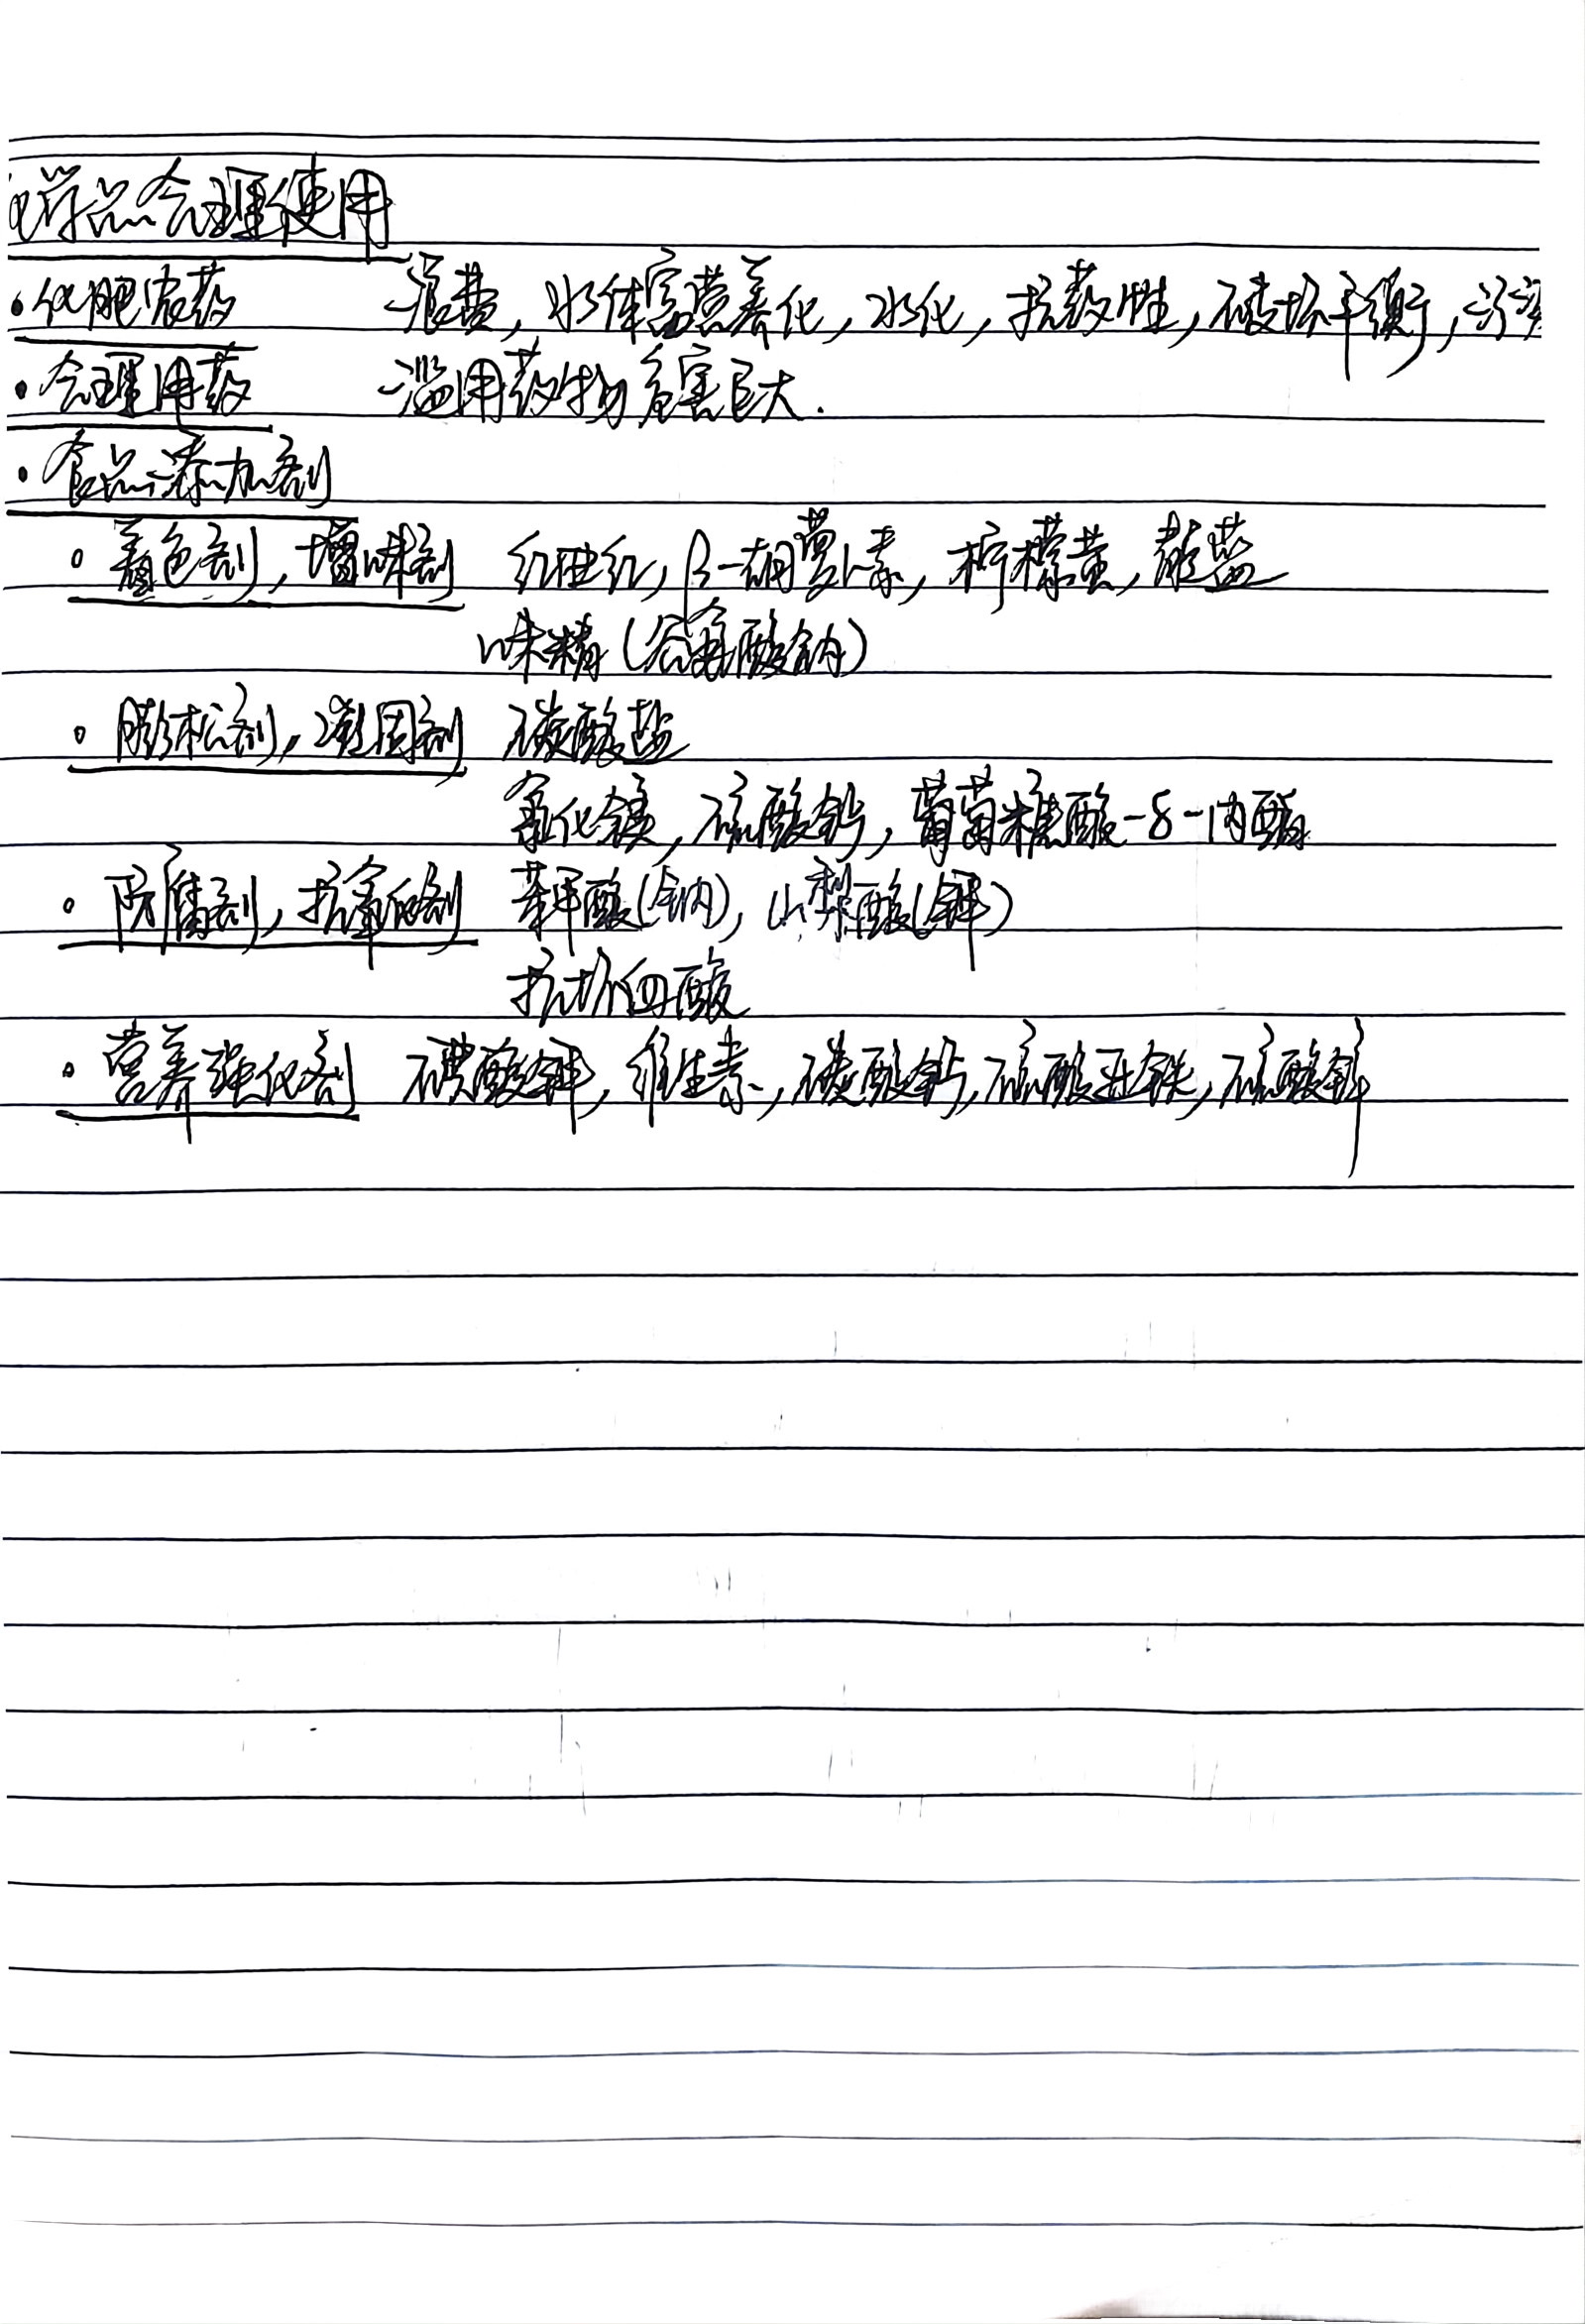 学品合理使用
·化肥农药 浪费，水体富营养化，水化，抗药性，破坏平衡，污染
·合理用药 滥用药物危害巨大.
·食品添加剂
。着色剂，增味剂 红曲红，β-胡萝卜素，柠檬黄，靛蓝
味精(谷氨酸钠)
。膨松剂，凝固剂 碳酸盐
氯化镁，硫酸钙，葡萄糖酸-δ-内酯
。防腐剂，抗氧化剂 苯甲酸(钠)，山梨酸(钾)
抗坏血酸
。营养强化剂 碘酸钾，维生素，碳酸钙，硫酸亚铁，硫酸锌